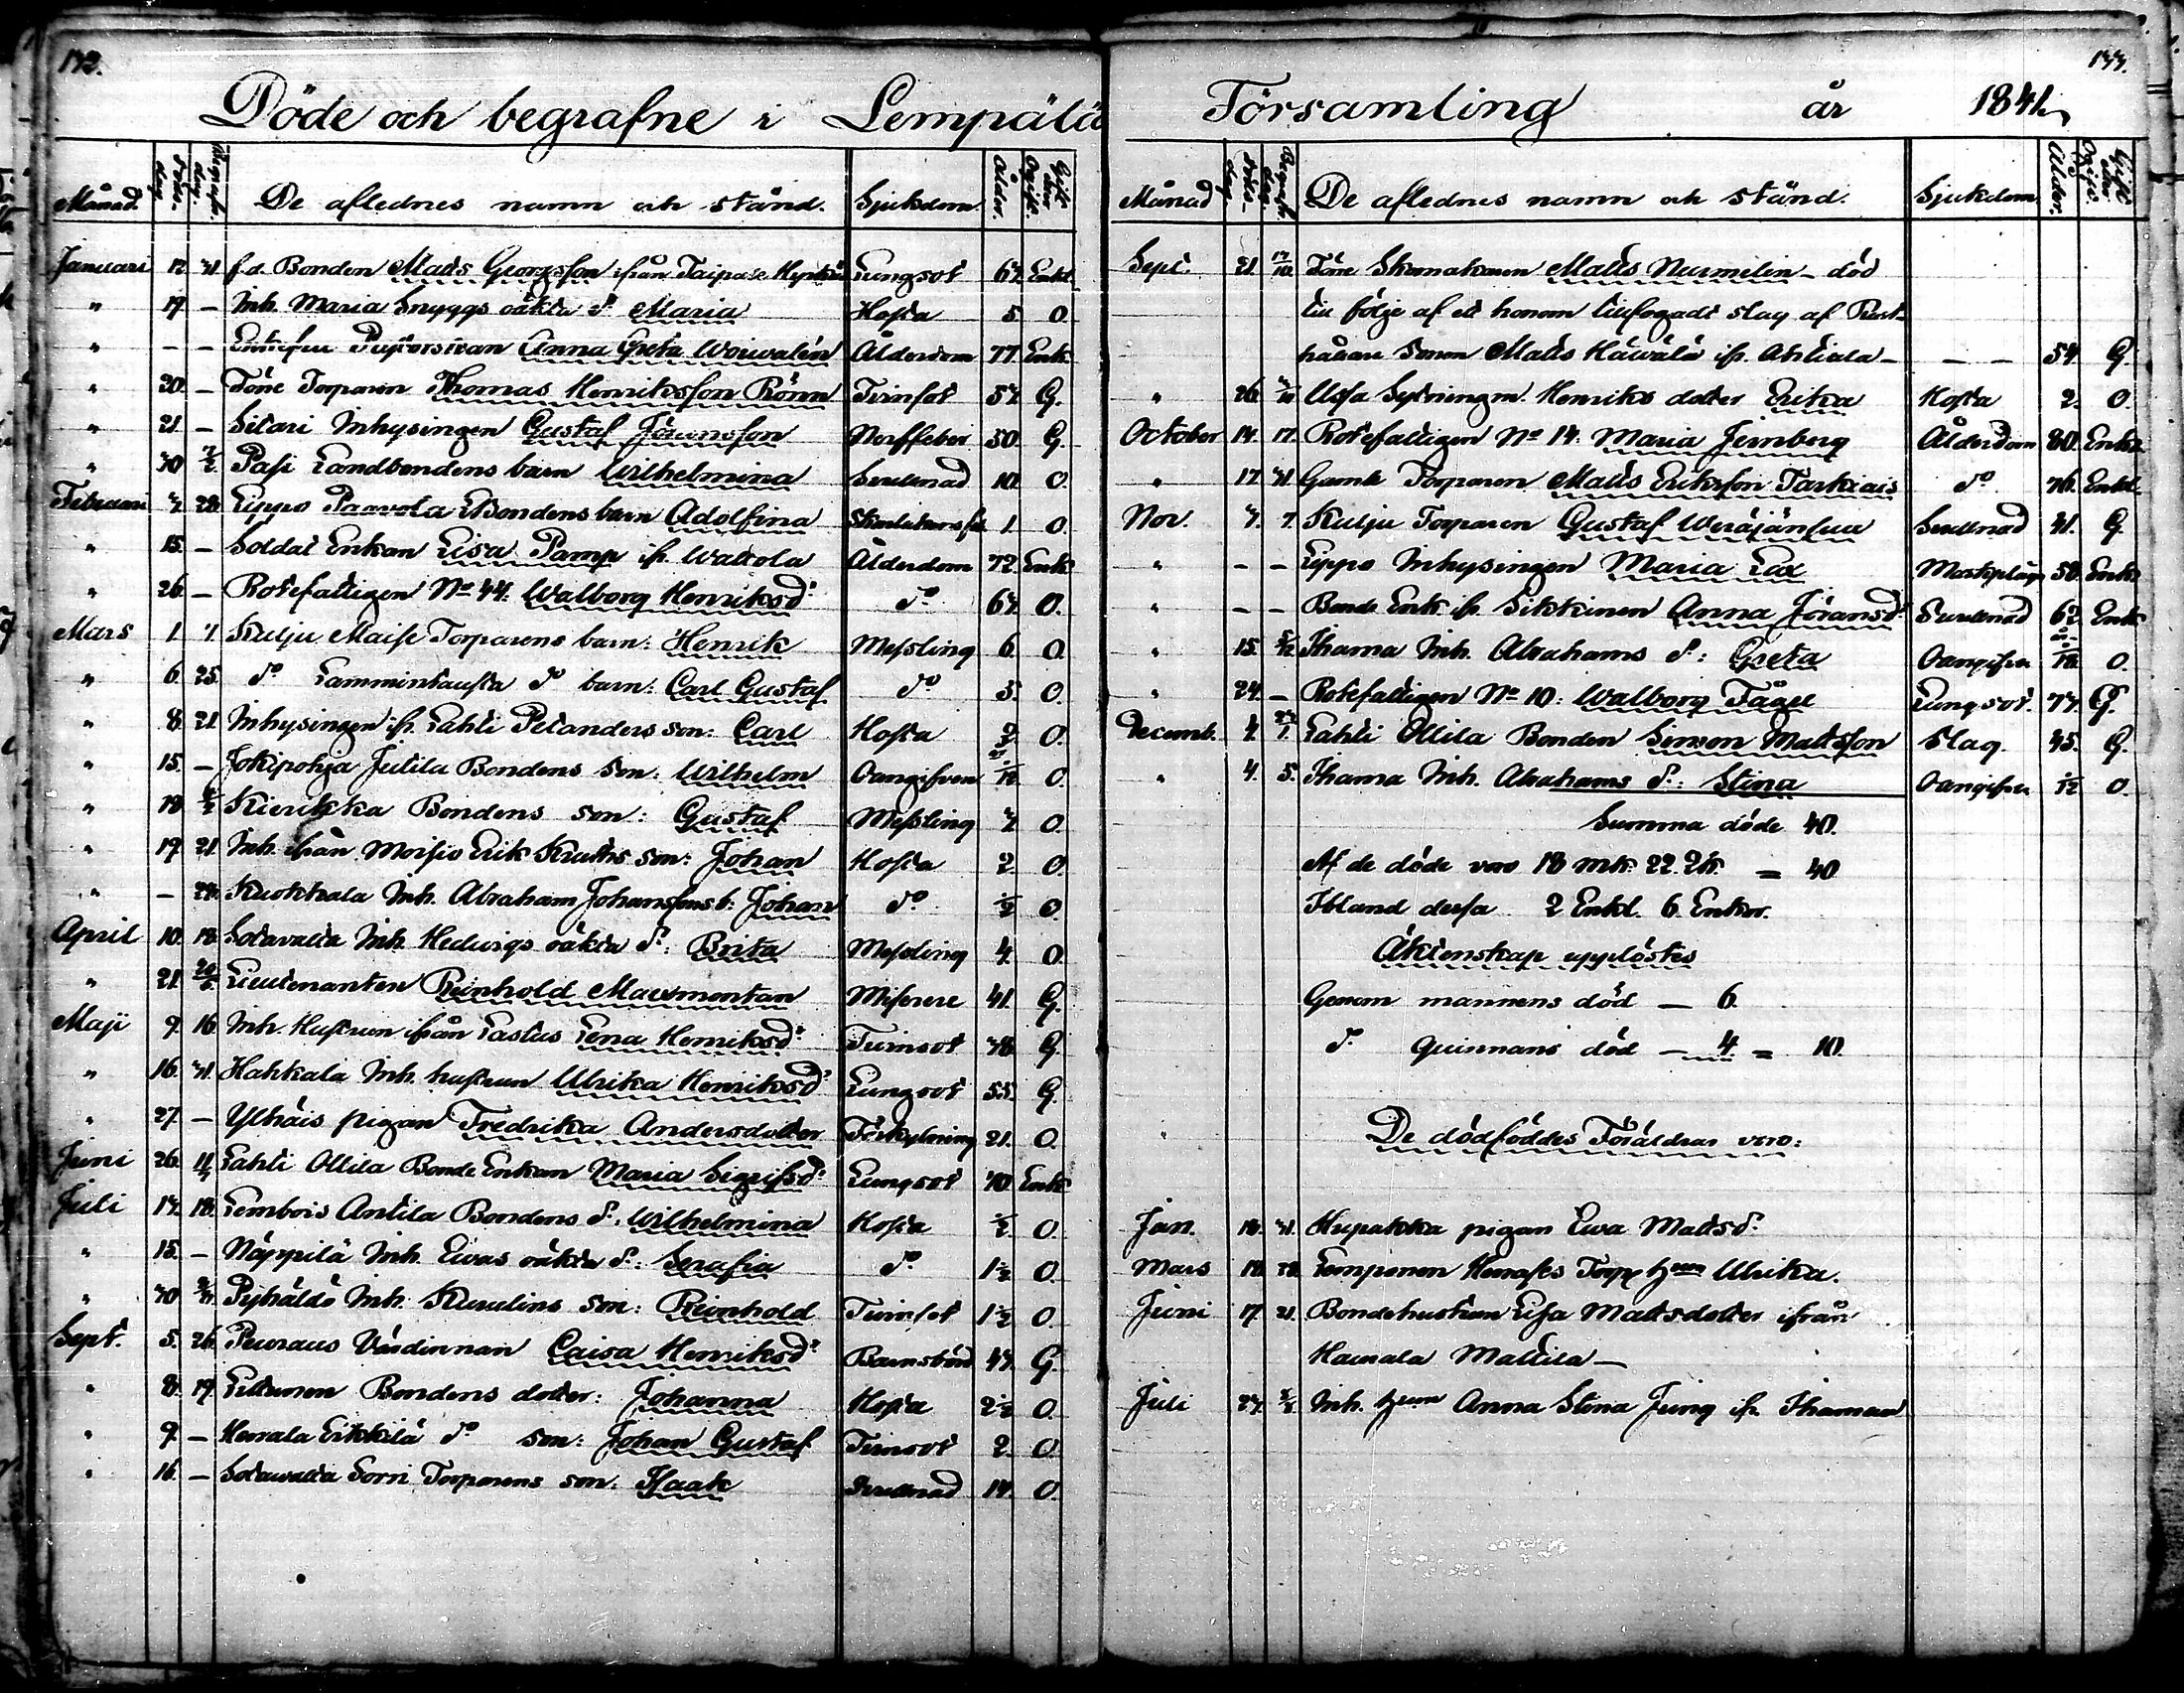 132.
Döde och begrafne i Lempälä
Månad. Döds-dag. Begrafn. dag. De aflednes namn och stånd. Sjukdom. Ålder. Gift eller Ogift.
Januari 12 31 f.d. Bonden Matts Georgsson ifrån Taipale Lungsot 63. Enkl.
" 19 — Inh. Maria Snyggs oäkta dr Maria Hosta 5 O.
" — — Pastorskan Anna Greta Ålderdom 77. Enk.
" 20. — Torparen Thomas Henriksson Rönn Tvinsot 53. G.
" 21 — Sitari Inhysingen Gustaf Göransson Nerffeber 50. G.
" 30 7/2. Pasi Landbondens barn Wilhelmina Serdnad 10. O.
Februari 3. 28. Lippo Paavola Bondens barn Adolfina 1. O.
" 15. — Soldat Enkan Lisa Pamp ifr. Wattola Ålderdom 72. Enk.
" 26. — Rotefattigen No 44: Walborg Henriksdr do 63. O.
Mars 1. 7 Kulju Maise Torparens barn: Henrik Messling 6. O.
" 6. 25. do Lamminkausta do barn: Carl Gustaf do 5. O.
" 8. 21 Inhysingen ifr. Lahti Petanders son: Carl Hosta O.
" 15. — Jokipohja Jutila Bondens son: Wilhelm Oangifven O.
" 18 Kierikka Bondens son: Gustaf Messling 3 O.
" 19 21. Inh. ifrån Moisio Erik son: Johan Hosta 2 O.
" — 28. Kuokkala Inh. Abraham Johanssons b: Johan do ½ O.
April 10. 18. Sotavalta Inh. Hedvigs oäkta dr: Brita Messling 4. O.
" 21. 20/5. Lieutenanten Reinhold Maxmontan Miserere 41. G.
Maji 9. 16. Inh. Hustrun ifrån Lastus Lena Henriksdr Tvinsot 38. G.
" 16. 31. Hahkala Inh. hustrun Ulrika Henriksdr Lungsot 55. G.
" 27. — Ylhäis pigan Fredrika Andersdotter Förkylning 21. O.
Juni 26. 11/7 Lahti Ollila Bonde Enkan Maria Sigfrsdr Lungsot 70. Enk.
Juli 13. 18. Lembois Antila Bondens dr. Wilhelmina Hosta ½. O.
" 15. — Näppilä Inh. Ewas oäkta dr: Serafia do 1½ O.
" 30 Pyhältö Inh. son: Reinhold Tvinsot 1½ O.
Sept. 5. 26. Peuraus Värdinnan Caisa Henriksdr Barnsbörd 43. G.
" 8. 19. Bondens dotter: Johanna Hosta 2½ O.
" 9. — Herrala Erkkilä do son: Johan Gustaf Tvinsot 2. O.
" 16. — Sotavalta Sorri Torparens son: Isaak Serdnad 14. O.
133.
Församling år 1841.
Månad Döds-dag. Begrafn. dag. De aflednes namn och stånd. Sjukdom Ålder. Gift eller Ogift.
Sept. 21. 17/10. Skomakaren Matts Nurmelin — död
till följe af ett honom tillfogadt slag af Rust-
hållare Sonen Matts Häwälä ifr. Ahtiala — — — 54. G.
" 26. Henriks dotter Erika Hosta 2. O.
October 14. 17. Rotefattigen No 14: Maria Jernberg Ålderdom 80. Enka.
" 17. 31. Gamle Torparen Matts Eriksson Tarkiais do 76. Enkl.
Nov. 3. 7. Kulju Torparen Gustaf Weräjänsuu Serdnad 41. G.
" — — Lippo Inhysingen Maria Lax 58. Enk.
" — — Bonde Enk. ifr. Sikkinen Anna Göransdr Serdnad 62. Enk.
" 15. 5/12. Thama Inh. Abrahams dr: Greta Oangifven O.
" 24. — Rotefattigen No 10: Walborg Tägel Lungsot. 73. G.
Decemb. Lahti Ollila Bonden Simon Mattsson Slag. 45. G.
" 4. 5. Thama Inh. Abrahams dr: Stina Oangifven O.
Summa döde 40.
Af de döde voro 18 mk. 22. qk. = 40
Ibland dessa 2 Enkl. 6 Enkor.
Äktenskap upplöstes
Genom mannens död — 6.
do quinnans död — 4. = 10.
De dödföddes Föräldrar voro:
Jan. 18. 31. Hupakka pigan Ewa Mattsdr
Mars 18. 28. Lemponen Torp. hun Ulrika.
Juni 17. 21. Bondehustrun Lisa Mattsdotter ifrån
Haurala Mattila —
Juli 23. Inh. hun Anna Stina Jung ifr.